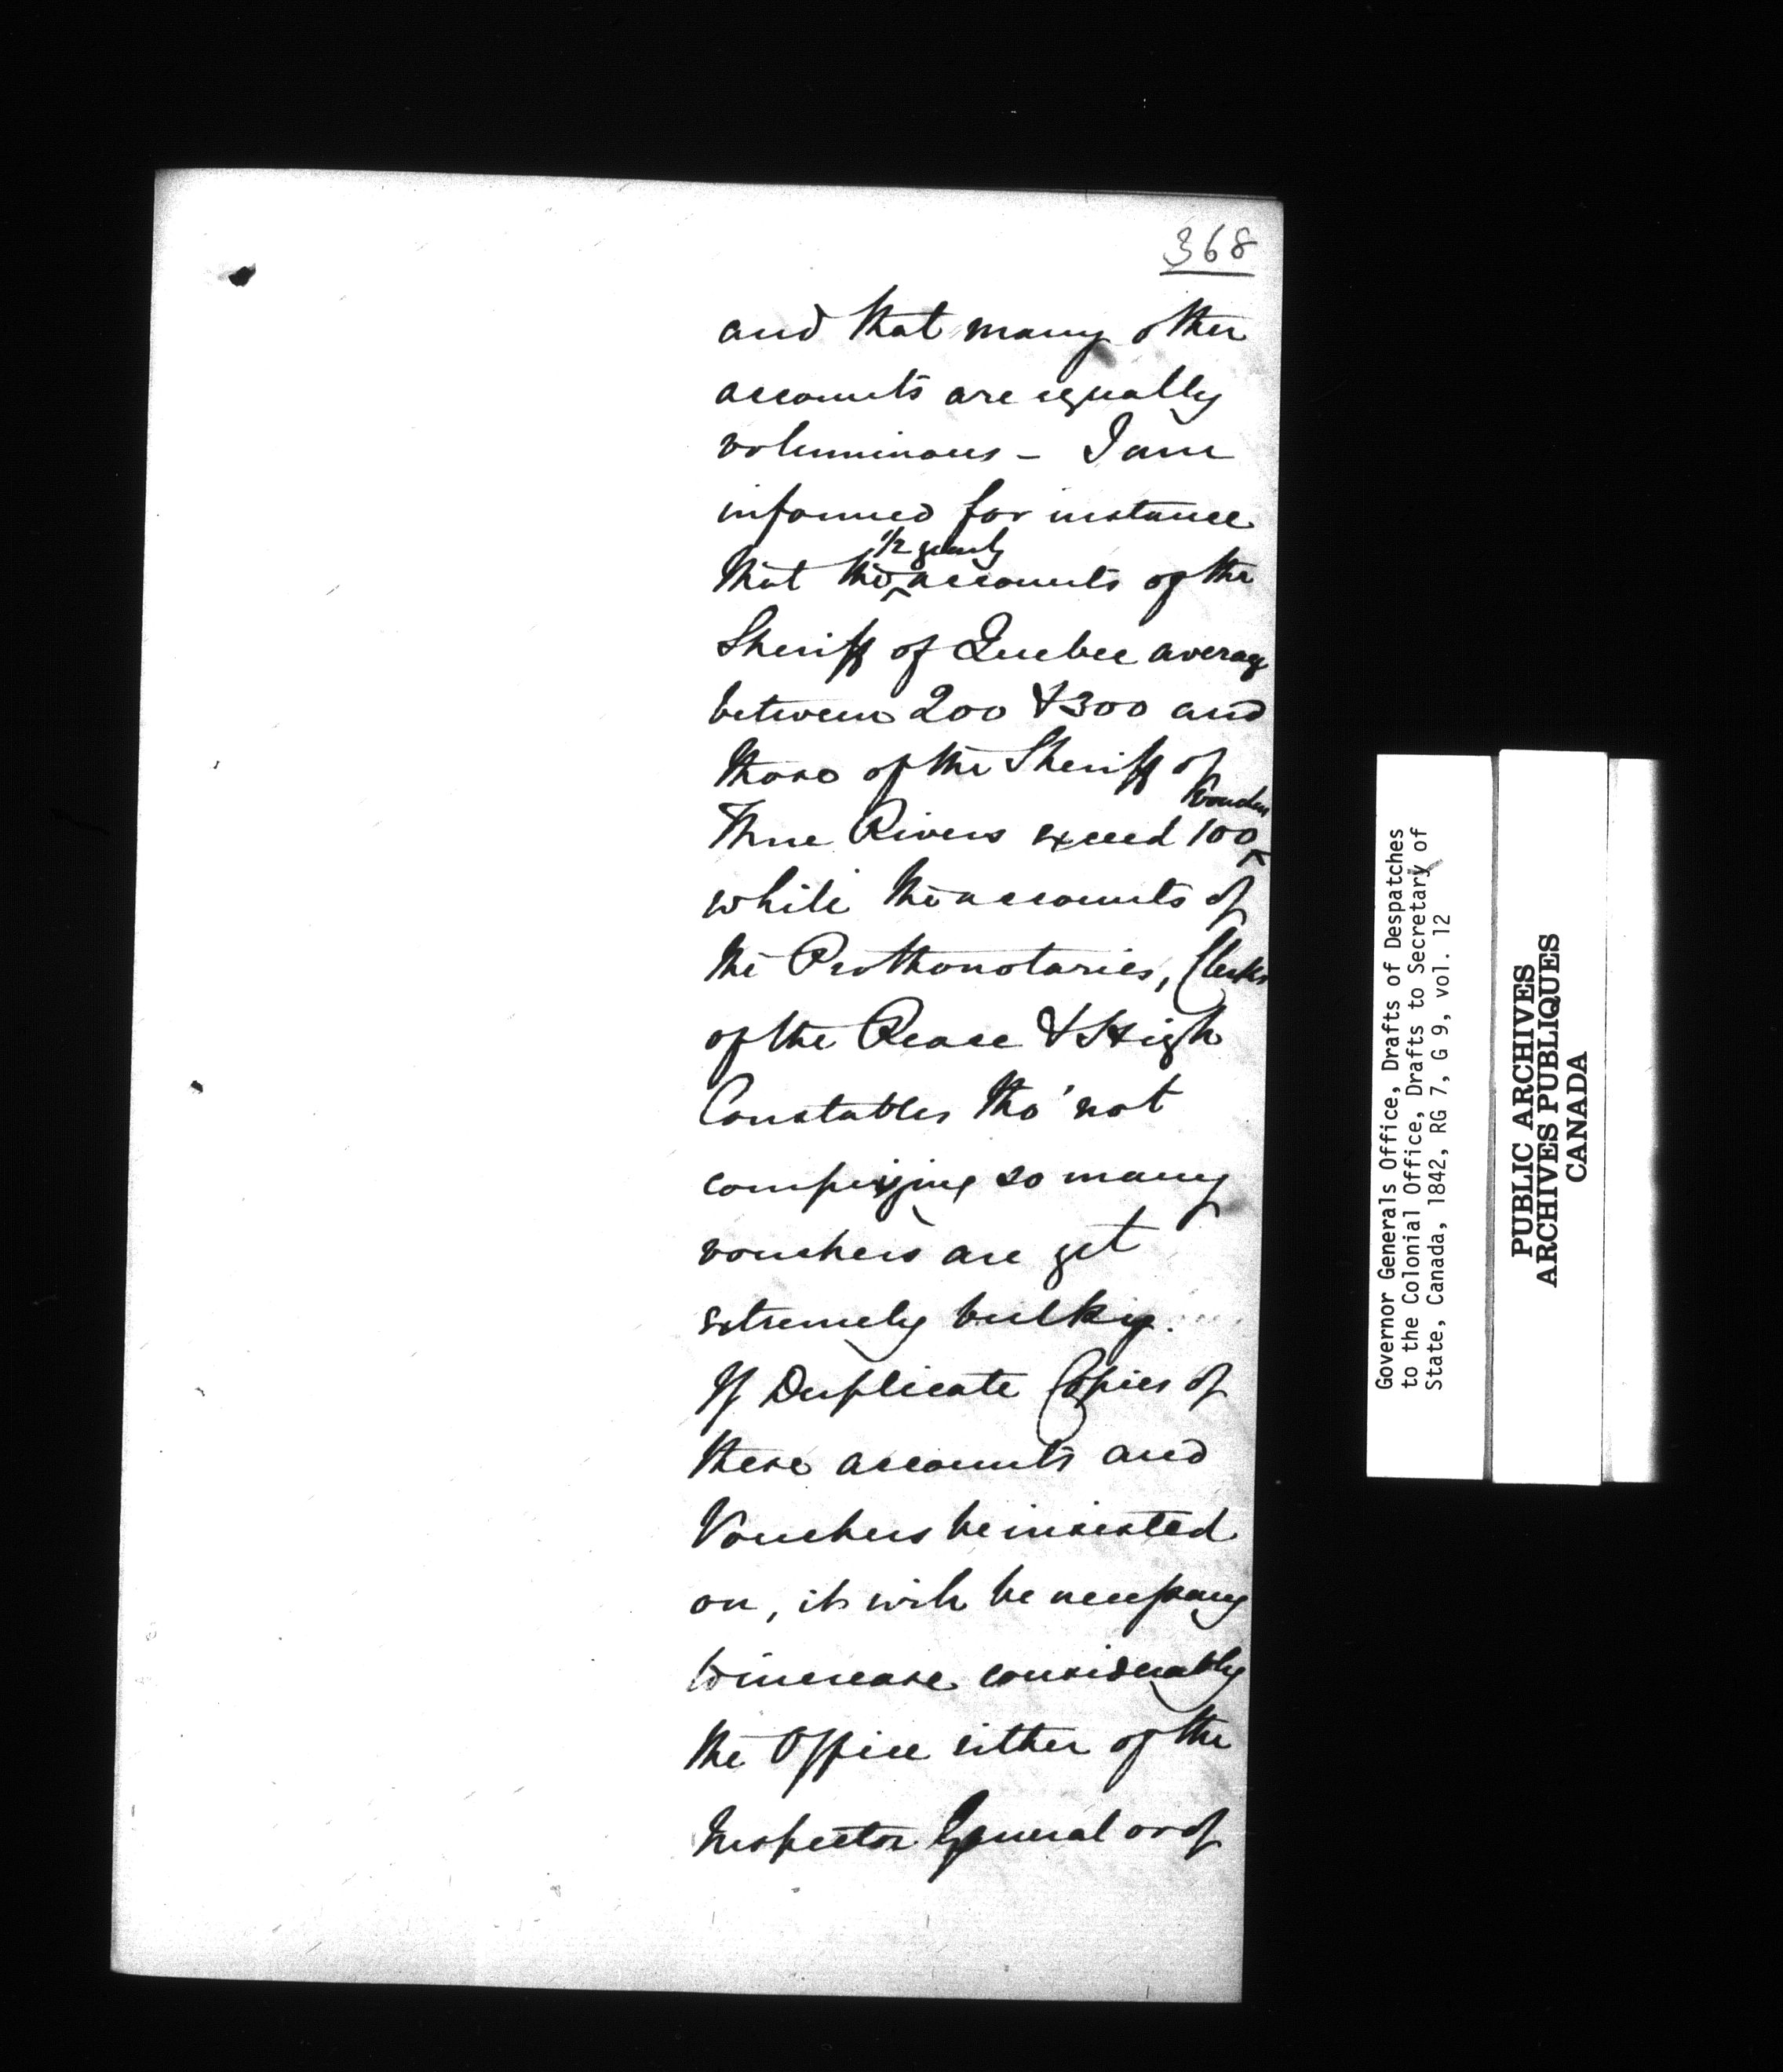 368
and that many other
accounts are equally
voluminous - I am
informed for instance
1/2 yearly
that the accounts of the
Sheriff of Quebec average
between 200 & 300 and
those of the Sheriff of
Vouchers
Three Rivers exceed 100
while the accounts of
the Prothonotaries, Clerks
of the Peace & High
Constables tho' not
comprizing so many
vouchers are yet
extremely bulky.
If Duplicate Copies of
these accounts and
Vouchers be insisted
on, it will be necessary
to increase considerably
the Office either of the
Inspector General or of
Governor Generals Office, Drafts of Despatches
to the Colonial Office, Drafts to Secretary of
State, Canada, 1842, RG 7, G 9, vol. 12
PUBLIC ARCHIVES
ARCHIVES PUBLIQUES
CANADA